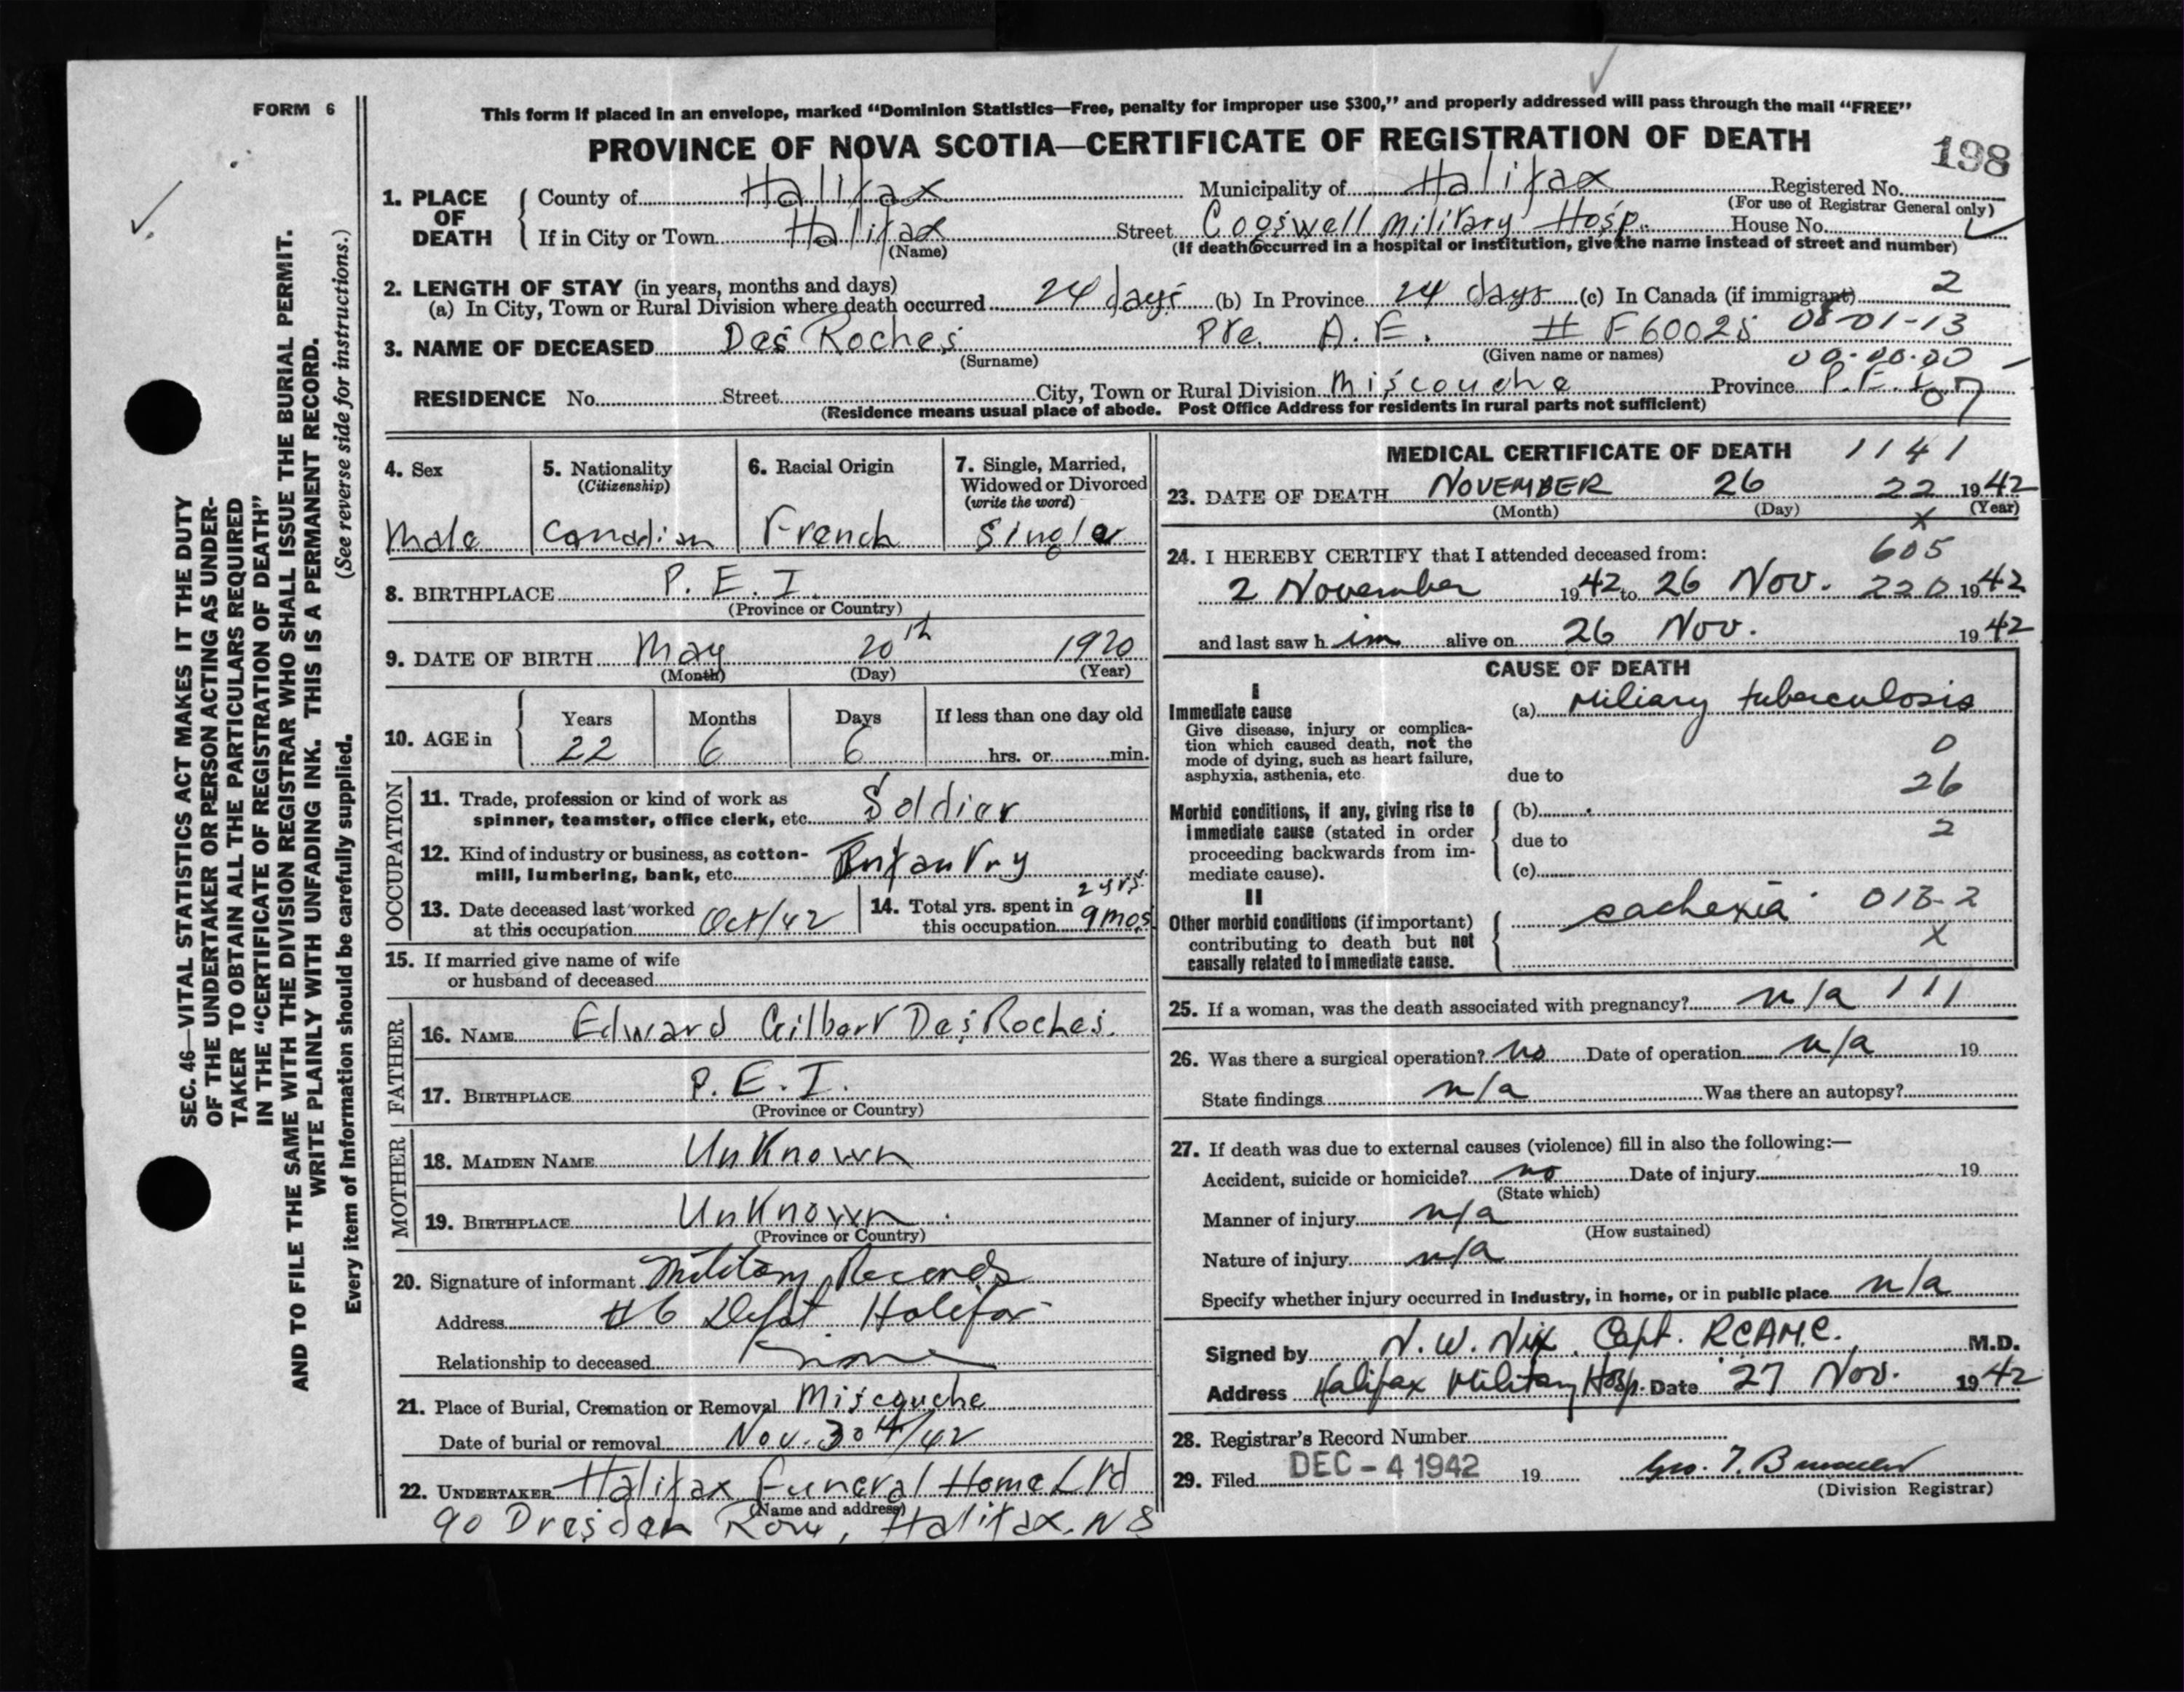 FORM 6
This form if placed in an envelope, marked “Dominion Statistics—Free, penalty for improper use $300,” and properly addressed will pass through the mail “FREE”
PROVINCE OF NOVA SCOTIA—CERTIFICATE OF REGISTRATION OF DEATH
198
1. PLACE OF DEATH
County of Halifax Municipality of Halifax Registered No.
(For use of Registrar General only)
If in City or Town Halifax Street Cogswell Military Hosp. House No.
(Name) (If death occurred in a hospital or institution, give the name instead of street and number)
2. LENGTH OF STAY (in years, months and days)
(a) In City, Town or Rural Division where death occurred 24 days (b) In Province 24 days (c) In Canada (if immigrant) 2
3. NAME OF DECEASED Des Roches Pte. A. E. # F60025 08-01-13
(Surname) (Given name or names) 00-00-00
RESIDENCE No. Street City, Town or Rural Division Miscouche Province P.E.I. 07
(Residence means usual place of abode. Post Office Address for residents in rural parts not sufficient)
4. Sex
Male
5. Nationality
(Citizenship)
Canadian
6. Racial Origin
French
7. Single, Married,
Widowed or Divorced
(write the word)
Single
8. BIRTHPLACE P. E. I.
(Province or Country)
9. DATE OF BIRTH May 20th 1920
(Month) (Day) (Year)
10. AGE in
Years Months Days If less than one day old
22 6 6 hrs. or min.
OCCUPATION
11. Trade, profession or kind of work as
spinner, teamster, office clerk, etc. Soldier
12. Kind of industry or business, as cotton-
mill, lumbering, bank, etc. Infantry
13. Date deceased last worked
at this occupation Oct/42
14. Total yrs. spent in 2 yrs.
this occupation 9 mos
15. If married give name of wife
or husband of deceased
FATHER
16. NAME Edward Gilbert DesRoches.
17. BIRTHPLACE P. E. I.
(Province or Country)
MOTHER
18. MAIDEN NAME UnKnown
19. BIRTHPLACE UnKnown
(Province or Country)
20. Signature of informant Military Records
Address #6 Dist. Halifax
Relationship to deceased none
21. Place of Burial, Cremation or Removal Miscouche
Date of burial or removal Nov. 30th/42
22. UNDERTAKER Halifax Funeral Home Ltd
(Name and address)
90 Dresden Row, Halifax. N S
MEDICAL CERTIFICATE OF DEATH 1141
23. DATE OF DEATH NOVEMBER 26 22 1942
(Month) (Day) (Year)
x
24. I HEREBY CERTIFY that I attended deceased from: 605
2 November 1942 to 26 Nov. 220 1942
and last saw h im alive on 26 Nov. 1942
CAUSE OF DEATH
I
Immediate cause
Give disease, injury or complica-
tion which caused death, not the
mode of dying, such as heart failure,
asphyxia, asthenia, etc.
(a) Miliary tuberculosis
0
due to 26
Morbid conditions, if any, giving rise to
immediate cause (stated in order
proceeding backwards from im-
mediate cause).
(b)
due to 2
(c)
II
Other morbid conditions (if important)
contributing to death but not
causally related to immediate cause.
cachexia 013-2
X
25. If a woman, was the death associated with pregnancy? n/a 111
26. Was there a surgical operation? no Date of operation n/a 19
State findings n/a Was there an autopsy?
27. If death was due to external causes (violence) fill in also the following:—
Accident, suicide or homicide? no Date of injury 19
(State which)
Manner of injury n/a
(How sustained)
Nature of injury n/a
Specify whether injury occurred in industry, in home, or in public place n/a
Signed by N. W. Nix, Capt. RCAMC. M.D.
Address Halifax Military Hosp. Date 27 Nov. 1942
28. Registrar's Record Number
29. Filed DEC - 4 1942 19 Geo. T.
(Division Registrar)
SEC. 46—VITAL STATISTICS ACT MAKES IT THE DUTY
OF THE UNDERTAKER OR PERSON ACTING AS UNDER-
TAKER TO OBTAIN ALL THE PARTICULARS REQUIRED
IN THE “CERTIFICATE OF REGISTRATION OF DEATH”
AND TO FILE THE SAME WITH THE DIVISION REGISTRAR WHO SHALL ISSUE THE BURIAL PERMIT.
WRITE PLAINLY WITH UNFADING INK. THIS IS A PERMANENT RECORD.
Every item of information should be carefully supplied. (See reverse side for instructions.)